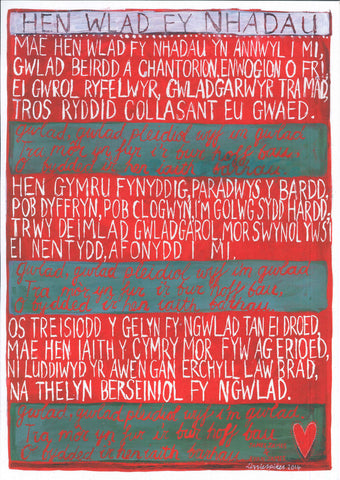 HEN WLAD FY NHADAU
MAE HEN WLAD FY NHADAU YN ANNWYL I MI,
GWLAD BEIRDD A CHANTORION, ENWOGION O FRI
EI GWROL RYFELWYR, GWLADGARWYR TRA MAD,
TROS RYDDID COLLASANT EU GWAED.
Gwlad, gwlad pleidiol wyf i'm gwlad
Tra môr yn fur i'r bur hoff bau,
O bydded i'r hen iaith barhau.
HEN GYMRU FYNYDDIG, PARADWYS Y BARDD,
POB DYFFRYN, POB CLOGWYN, I'M GOLWG SYDD HARDD,
TRWY DEIMLAD GWLADGAROL, MOR SWYNOL YW SI
EI NENTYDD, AFONYDD I MI.
Gwlad, gwlad pleidiol wyf i'm gwlad
Tra môr yn fur i'r bur hoff bau,
O bydded i'r hen iaith barhau.
OS TREISIODD Y GELYN FY NGWLAD TAN EI DROED,
MAE HEN IAITH Y CYMRY MOR FYW AG ERIOED,
NI LUDDIWYD YR AWEN GAN ERCHYLL LAW BRAD,
NA THELYN BERSEINIOL FY NGWLAD.
Gwlad, gwlad pleidiol wyf i'm gwlad
Tra môr yn fur i'r bur hoff bau
O bydded i'r hen iaith barhau
2014